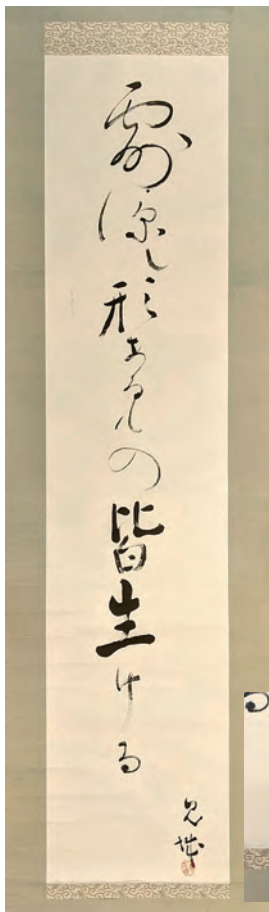 露涼し形あるもの皆生ける
鬼城